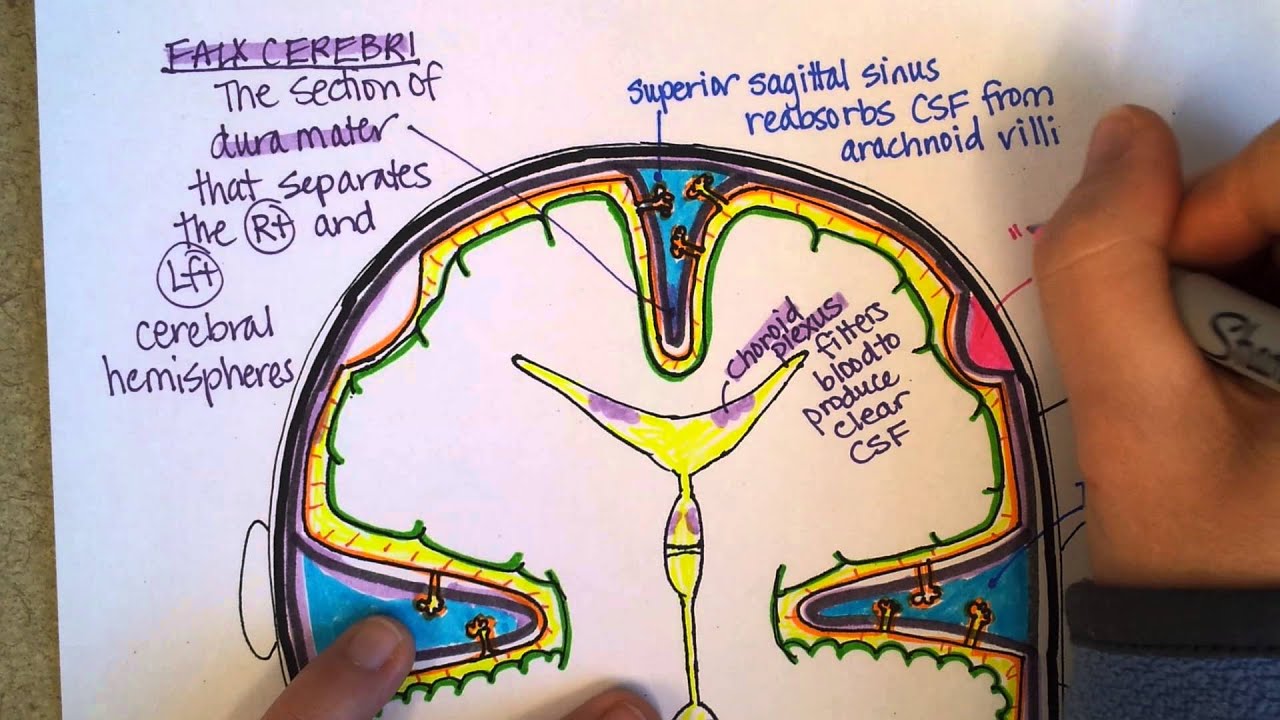 FALX CEREBRI
The section of
dura mater
that separates
the Rt and
Lft
cerebral
hemispheres
superior sagittal sinus
reabsorbs CSF from
arachnoid villi
choroid
plexus
filters
blood to
produce
clear
CSF